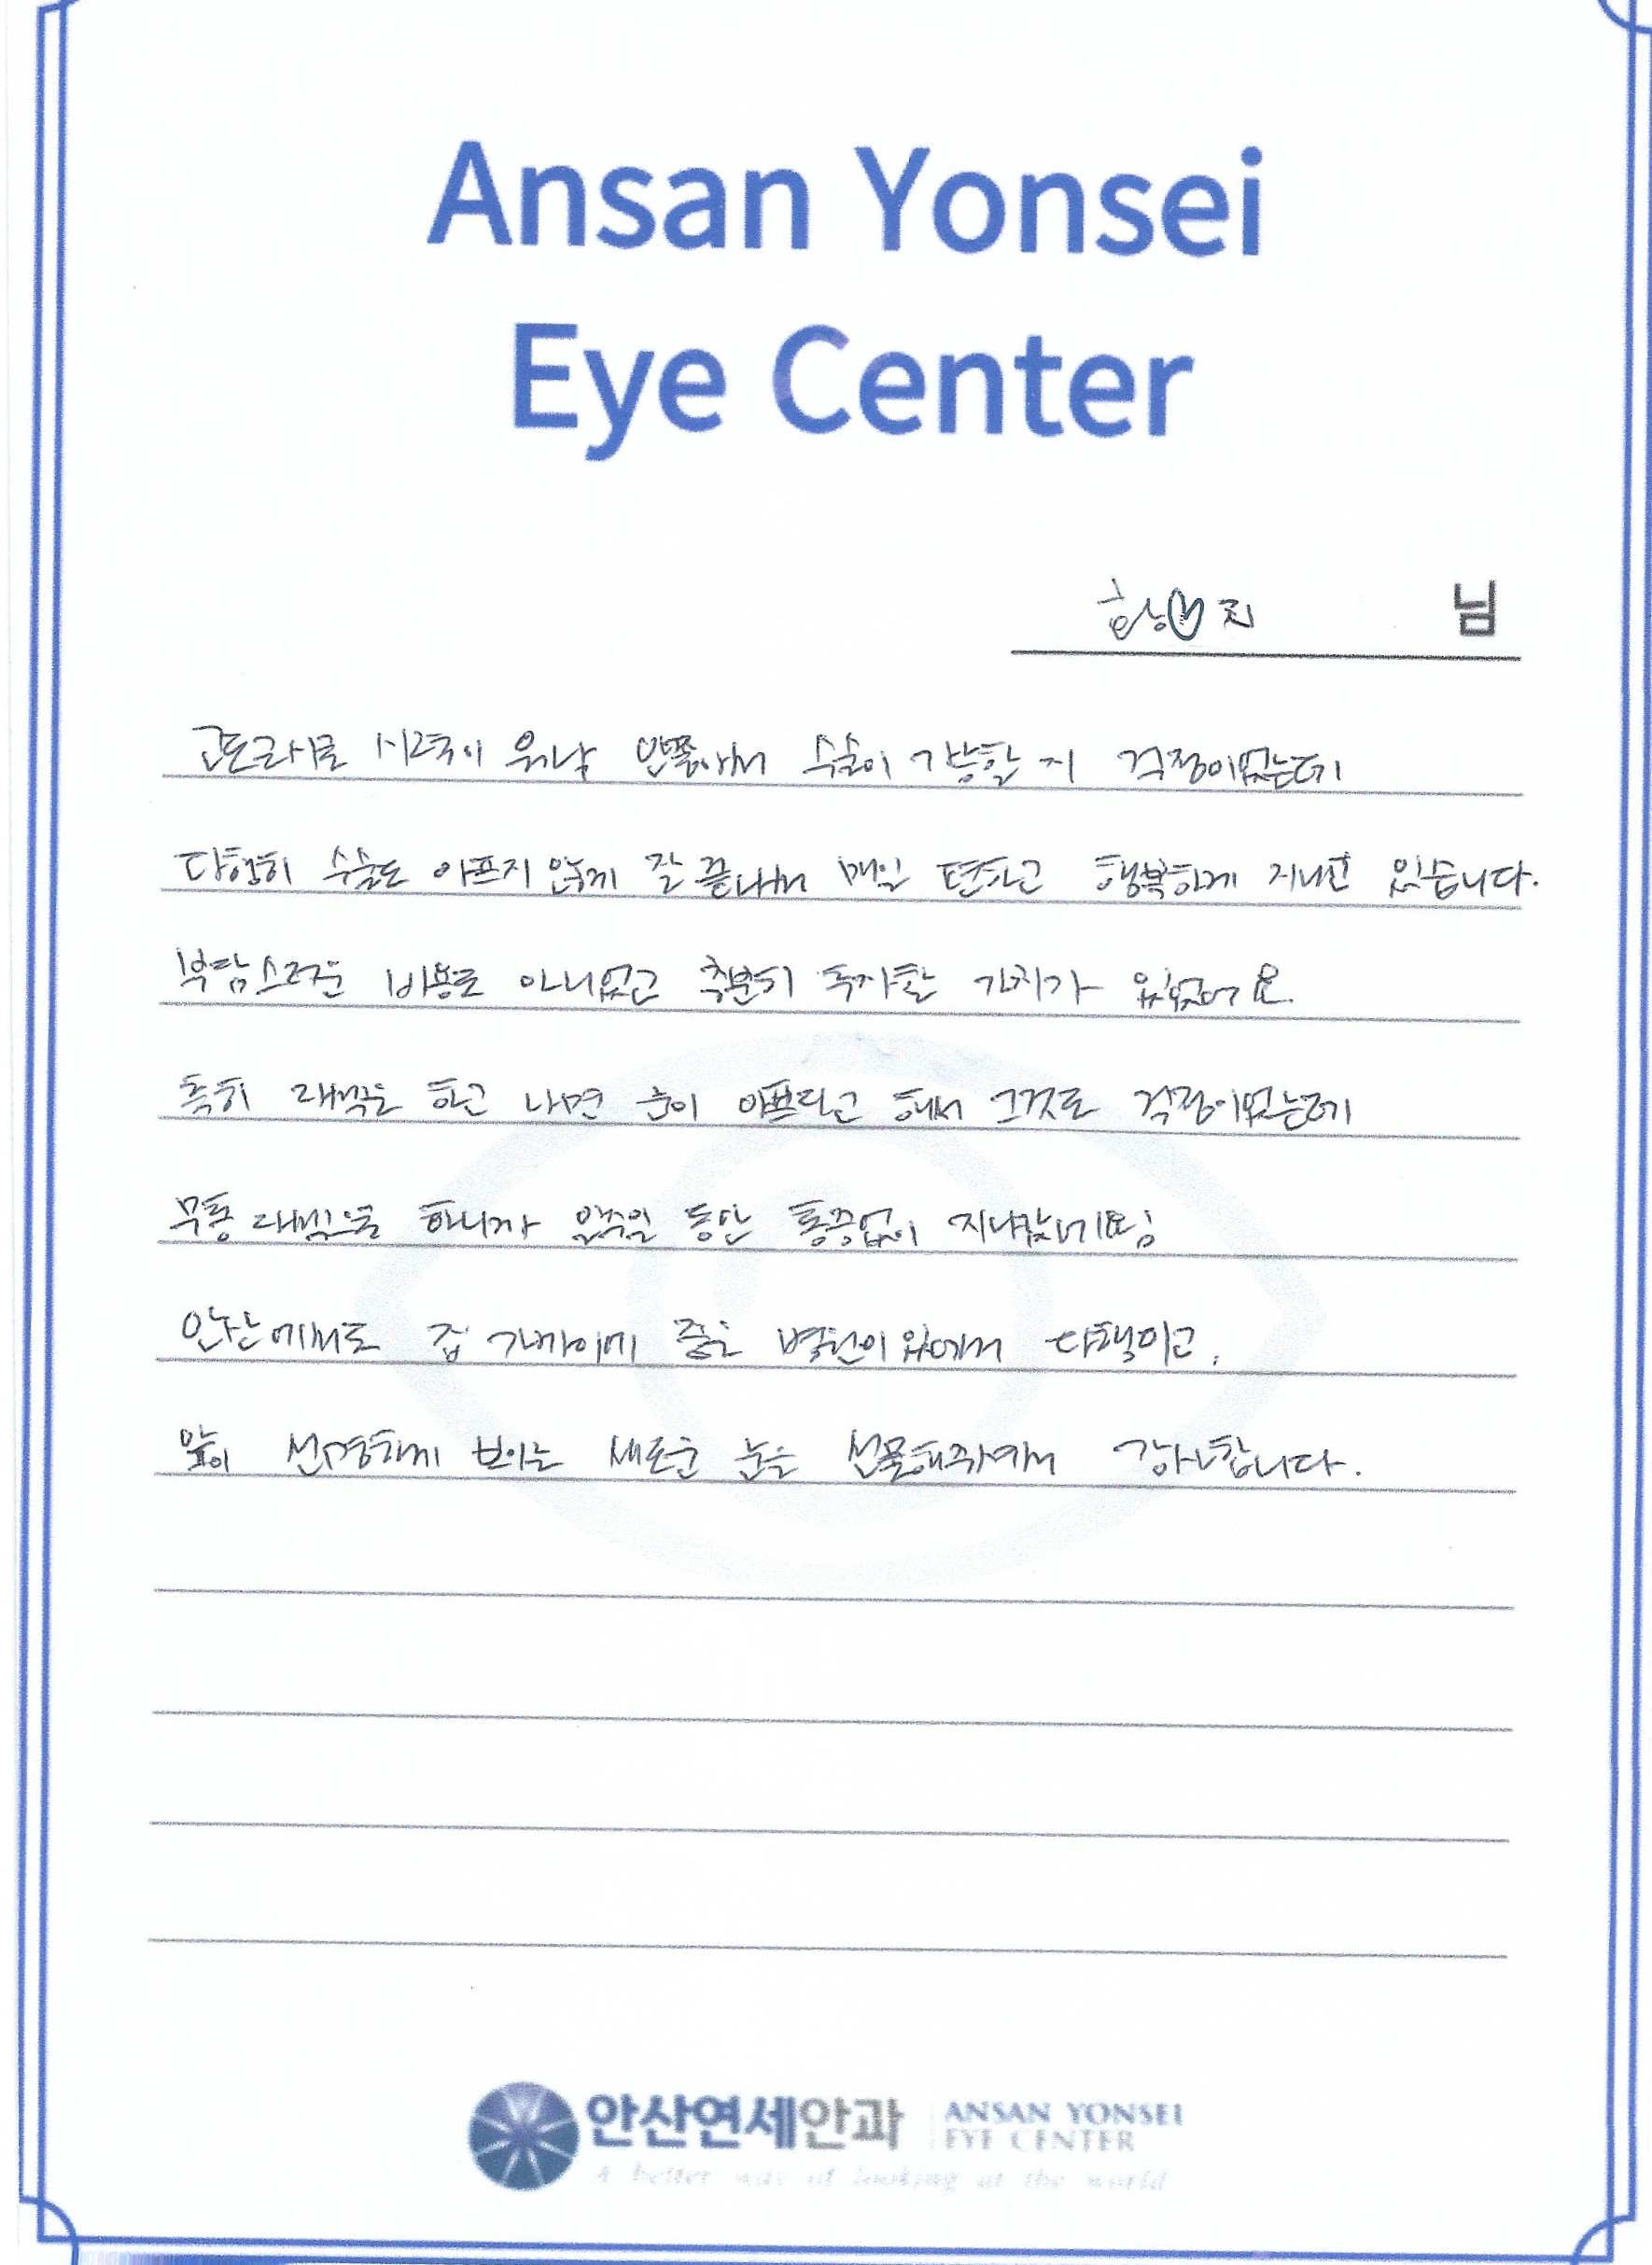 Ansan Yonsei
Eye Center
황♡진 님
고도근시로 시력이 워낙 안좋아서 수술이 가능할 지 걱정이었는데
다행히 수술도 아프지 않게 잘 끝나서 매일 편하고 행복하게 지내고 있습니다.
부담스러운 비용도 아니었고 충분히 투자할 가치가 있었어요.
특히 라섹은 하고 나면 눈이 아프다고 해서 그것도 걱정이었는데
무통라섹으로 하니까 일주일 동안 통증없이 지나갔네요;
안산에서도 집 가까이에 좋은 병원이 있어서 다행이고,
앞이 선명하게 보이는 새로운 눈을 선물해주셔서 감사합니다.
안산연세안과 ANSAN YONSEI
EYE CENTER
A better way of looking at the world